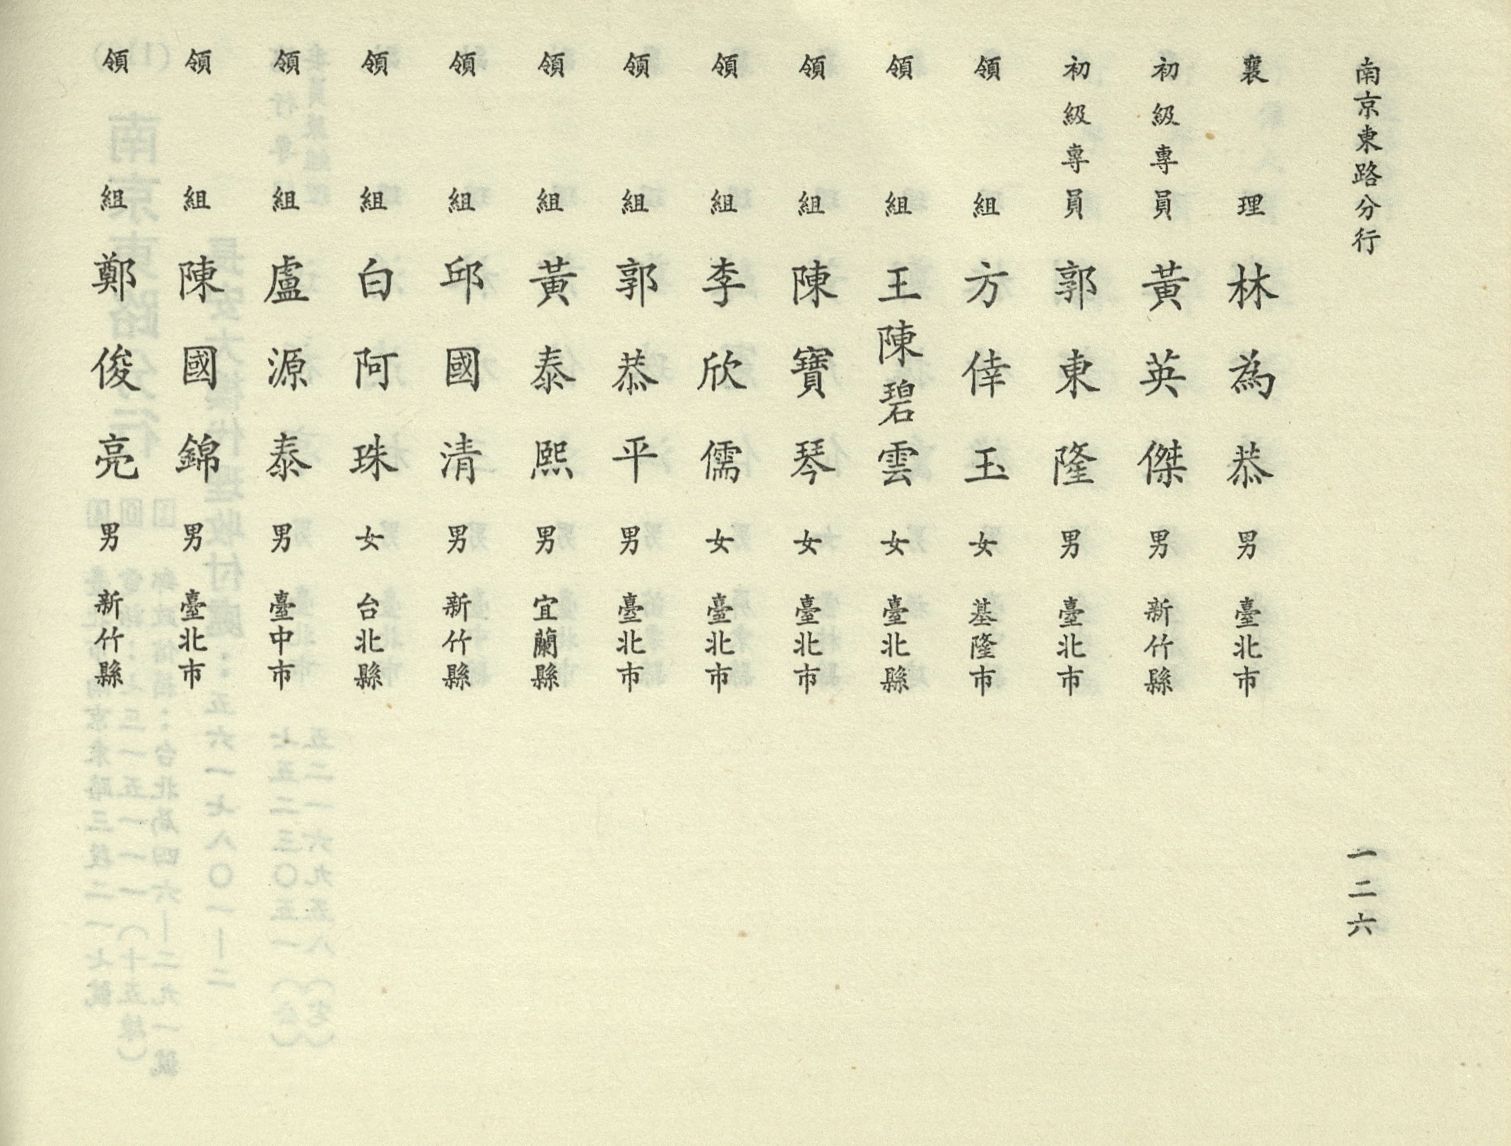 南京東路分行
一二六
襄理 林為恭 男 臺北市
初級專員 黃英傑 男 新竹縣
初級專員 郭東隆 男 臺北市
領組 方倖玉 女 基隆市
領組 王陳碧雲 女 臺北縣
領組 陳寶琴 女 臺北市
領組 李欣儒 女 臺北市
領組 郭恭平 男 臺北市
領組 黃泰熙 男 宜蘭縣
領組 邱國清 男 新竹縣
領組 白阿珠 女 台北縣
領組 盧源泰 男 臺中市
領組 陳國錦 男 臺北市
領組 鄭俊亮 男 新竹縣